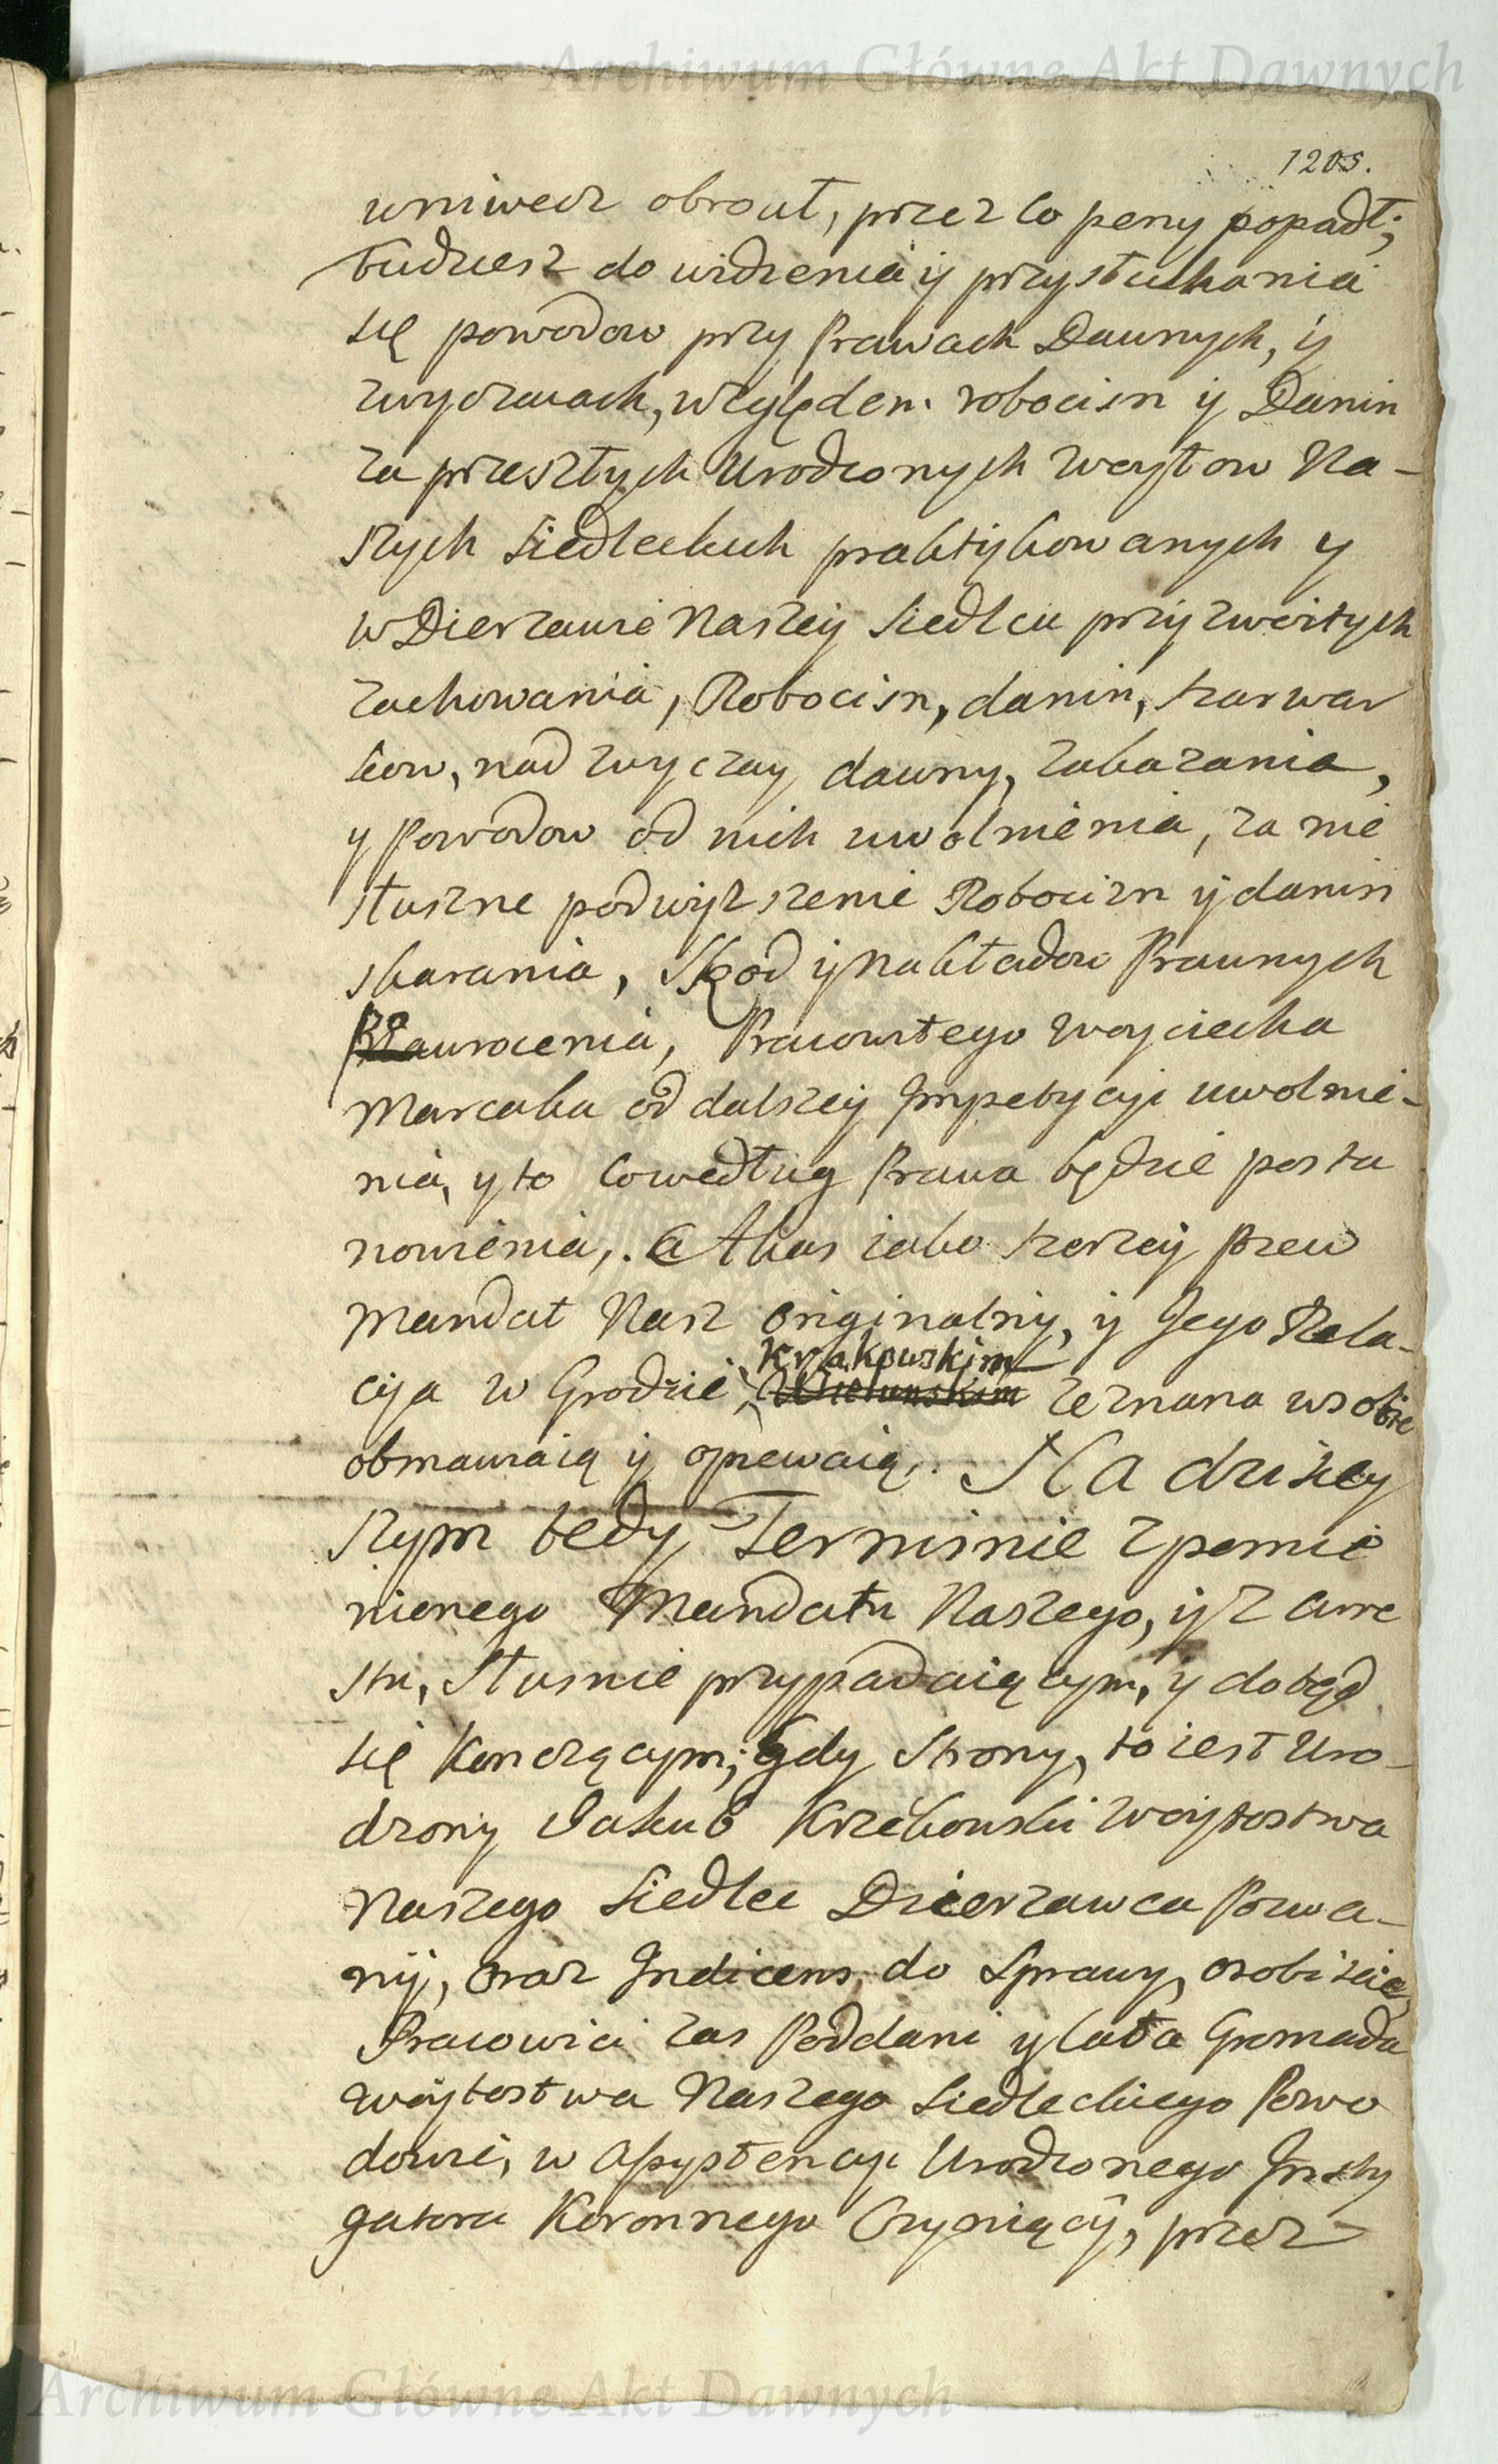 Archiwum Główne Akt Dawnych
1205.
wniwecz obrocił, przez co peny popadł;
tudziesz do widzenia ij przysłuchania
się powodow przy Prawach Dawnych, ij
zwyczaiach, względem robocizn ij Danin
za przeszłych Urodzonych Woytow Na-
szych Siedleckich praktykowanych y
w Dzierzawie Naszeij Siedlcu przyzwoitych
zachowania, Robocizn, danin, szarwar
kow, nad zwyczay dawny, zakazania,
y Powodow od nich uwolnienia, za nie
słuszne podwyższenie Robocizn ij danin
skarania, Szkod ij Nakładow Prawnych
nawrocenia, Pracowitego Woyciecha
Marcaka od dalszeij Impetycyi uwolnie-
nia, y to co według Prawa będzie posta
nowienia,. Actikas iako szerzeij Pozew
Mandat Nasz originalny, ij Jego Rela-
cya w Grodzie Krakowskim Wielunskim zeznana w sobie
obmawiaią ij opiewaią. Na dzisiey
szym tedy Terminie z pomie
nionego Mandatu Naszego, ij z aure
stu, słusznie przypadaiącym, y dotąd
się Konczącym; Gdy Strony, to iest Uro-
dzony Jakub Krzekowski Woijtostwa
Naszego Siedlce Dzierzawca Pozwa-
nij, oraz Indicens, do Sprawy, osobiscie
Pracowici zas Poddani y cała Gromada
Woijtostwa Naszego Siedleckiego Powo
dowie, w Assystencyi Urodzonego Insty
gatora Koronnego Czyniący, przez
Archiwum Główne Akt Dawnych